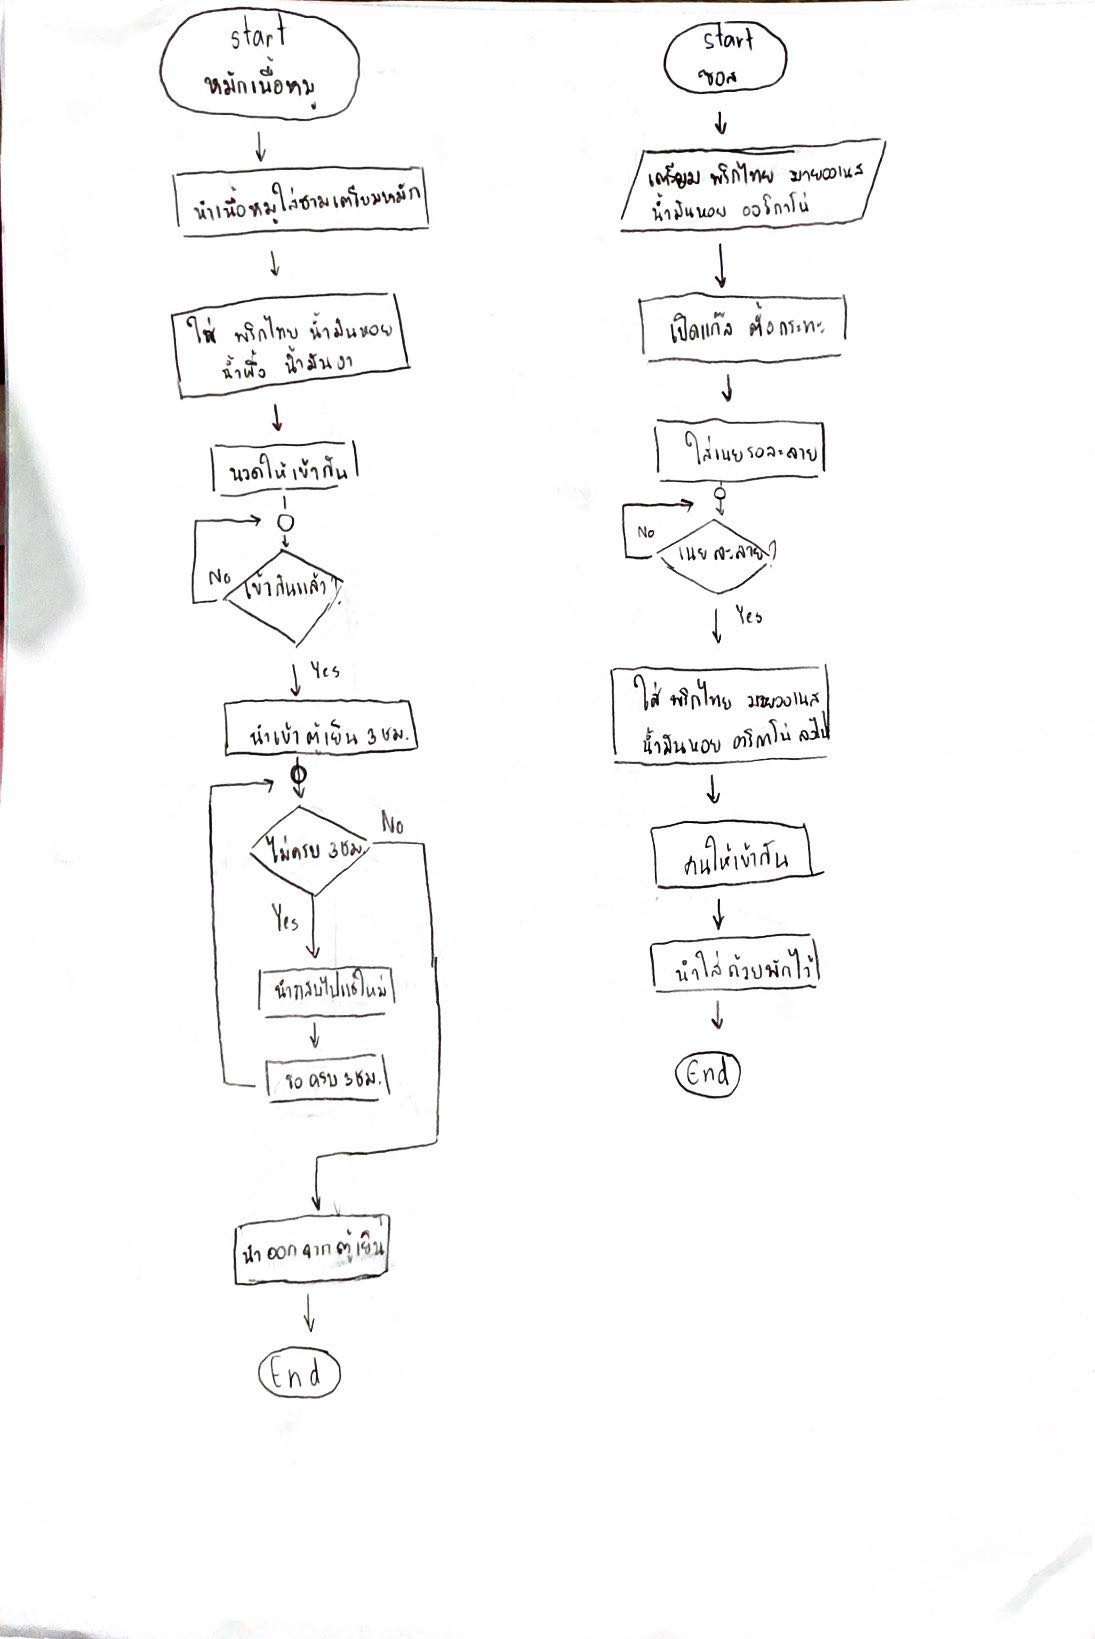 start
หมักเนื้อหมู
นำเนื้อหมูใส่ชามเตรียมหมัก
ใส่ พริกไทย น้ำมันหอย
น้ำผึ้ง น้ำมันงา
นวดให้เข้ากัน
No
เข้ากันแล้ว?
Yes
นำเข้าตู้เย็น 3 ชม.
ไม่ครบ 3 ชม.
No
Yes
นำกลับไปแช่ใหม่
รอ ครบ 3 ชม.
นำออกจากตู้เย็น
End
start
ซอส
เตรียม พริกไทย มายองเนส
น้ำมันหอย ออริกาโน่
เปิดแก๊ส ตั้งกระทะ
ใส่เนยรอละลาย
No
เนยละลาย?
Yes
ใส่ พริกไทย มายองเนส
น้ำมันหอย ออริกาโน่ ลงไป
คนให้เข้ากัน
นำใส่ถ้วยพักไว้
End